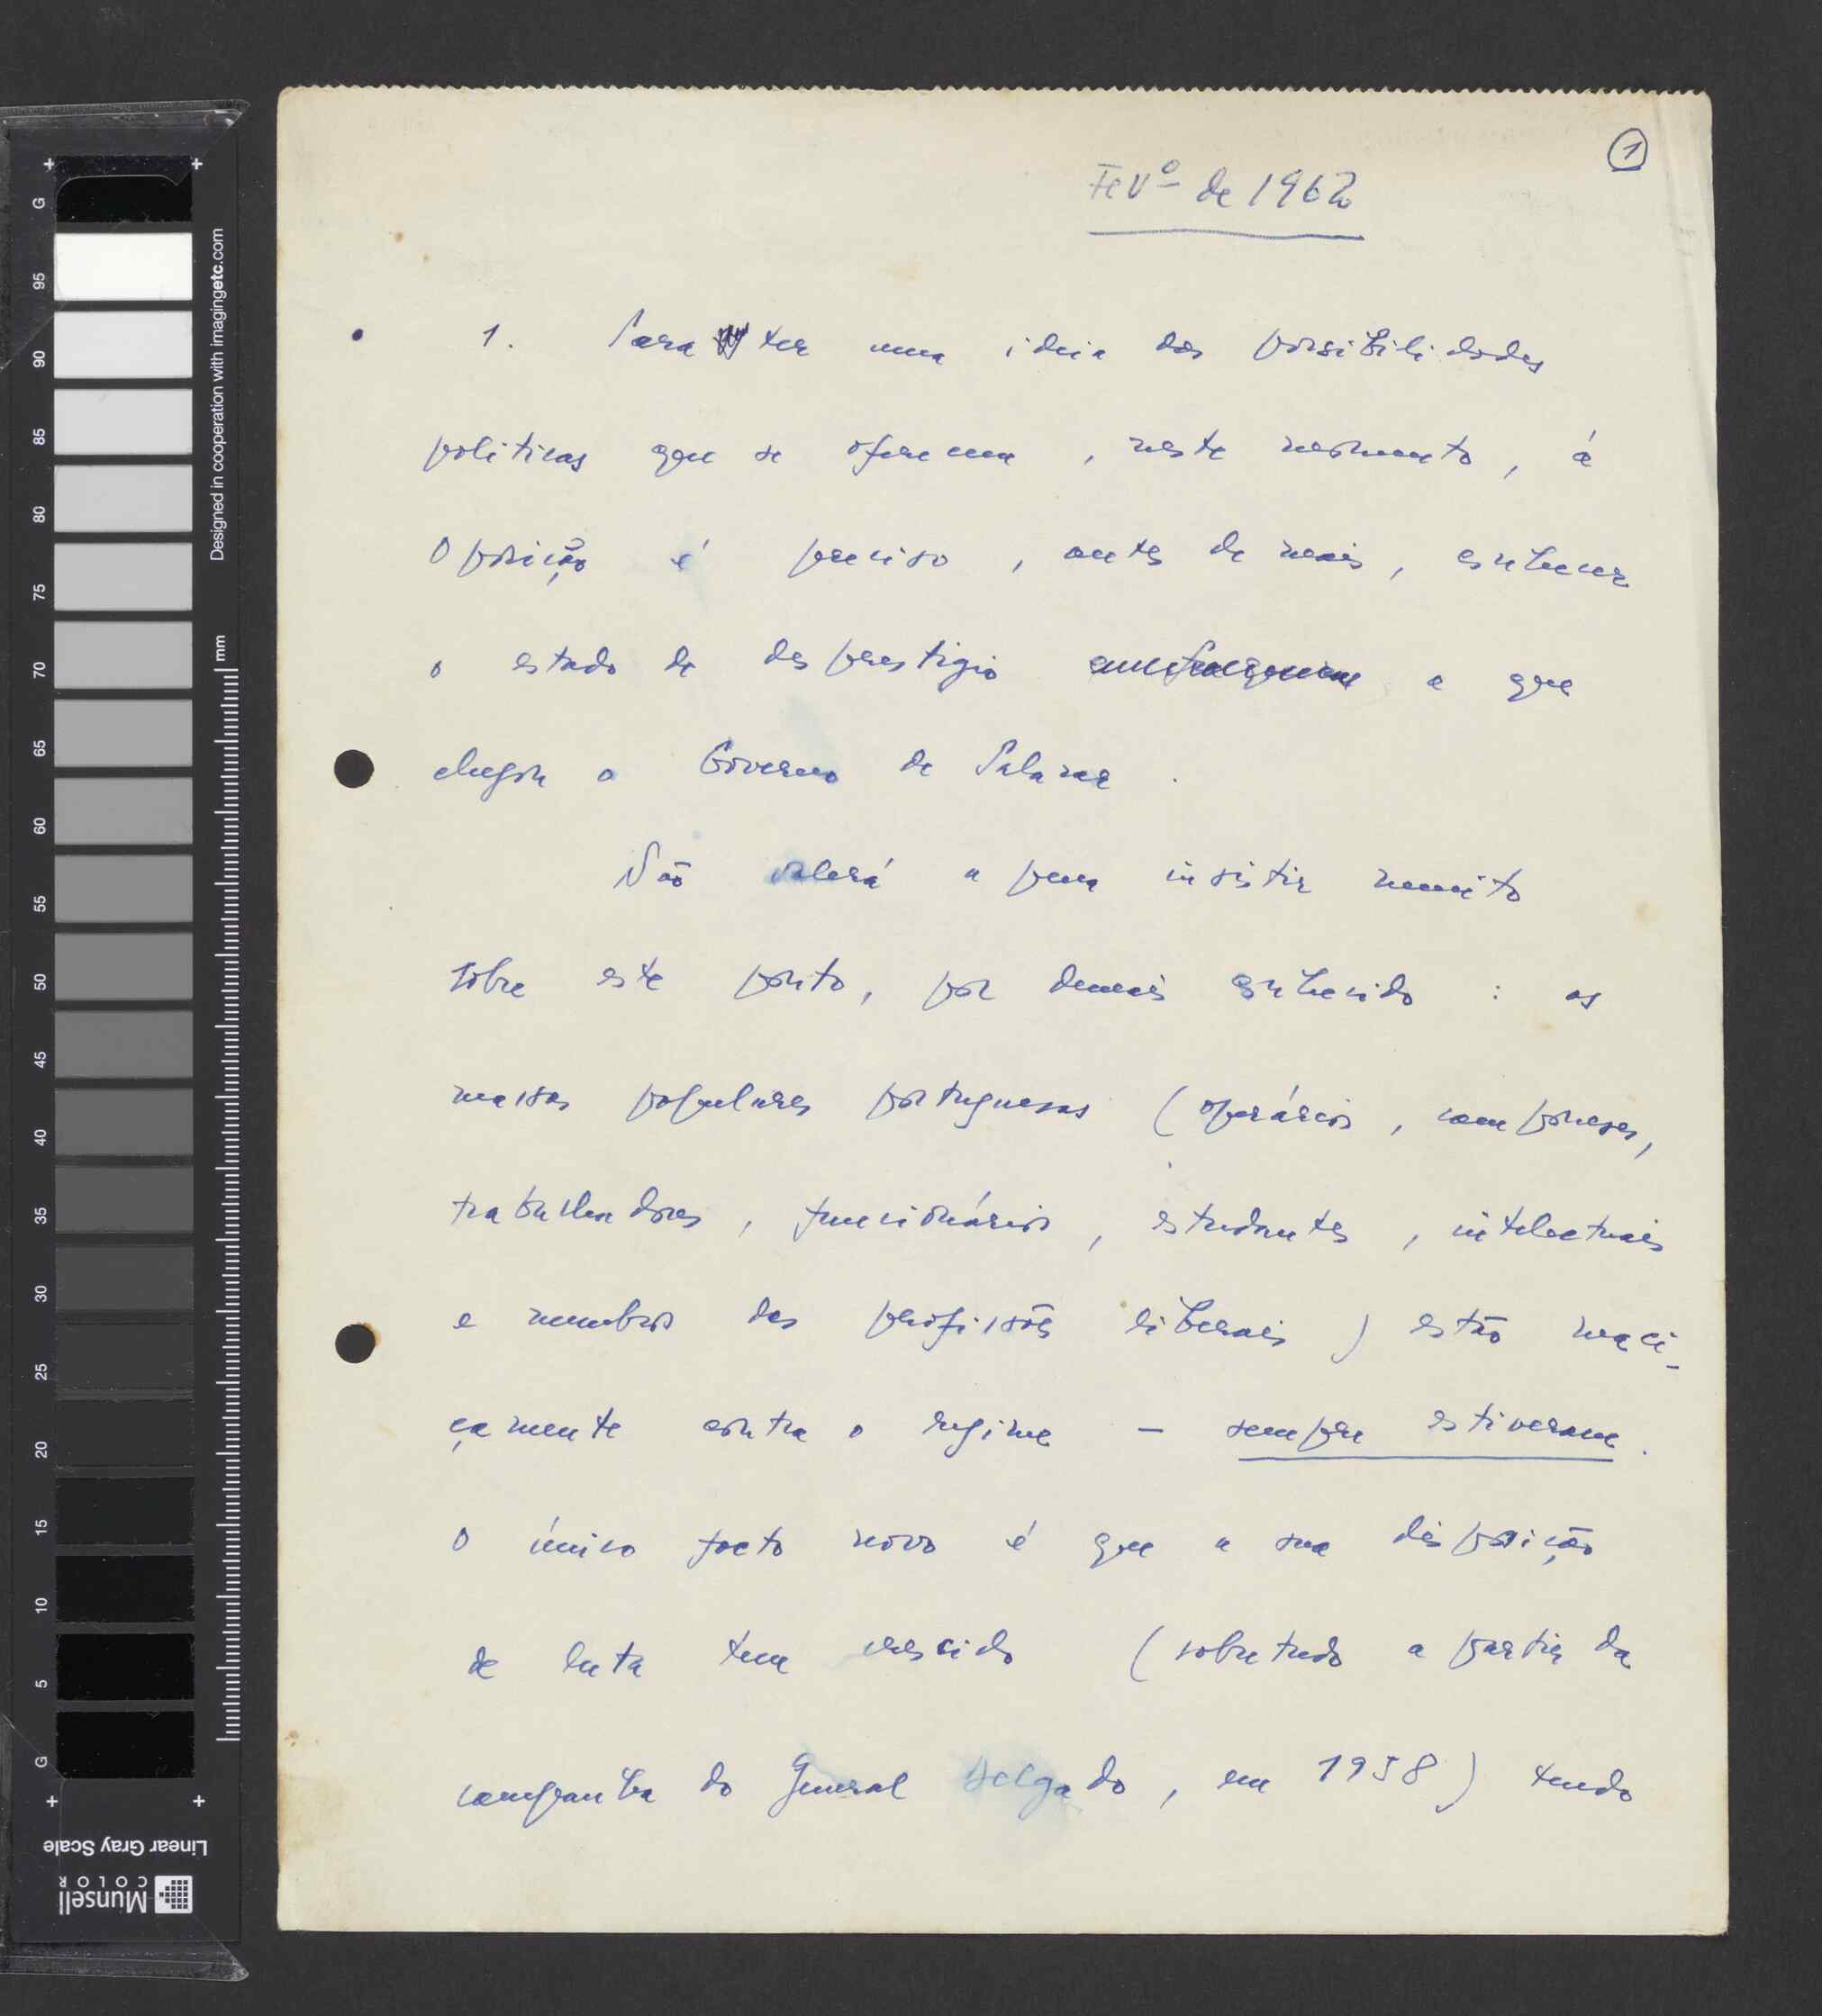 1
Fevº de 1962
1. Para ter uma ideia das possibilidades
politicas que se oferecem, neste momento, á
Oposição é preciso, antes de mais, conhecer
o estado de desprestigio a que
chegou o Governo de Salazar.
Não valerá a pena insistir muito
sobre este ponto, por demais conhecido : as
massas populares portuguesas (operários, camponeses,
trabalhadores, funcionários, estudantes, intelectuais
e membros das profissões liberais) estão maci-
çamente contra o regime – sempre estiveram.
O único facto novo é que a sua disposição
de luta tem crescido (sobretudo a partir da
campanha do General Delgado, em 1958) tendo
Designed in cooperation with imagingetc.com
mm
G 95 90 85 80 75 70 65 60 55 50 45 40 35 30 25 20 15 10 5 G
Linear Gray Scale
Munsell
COLOR